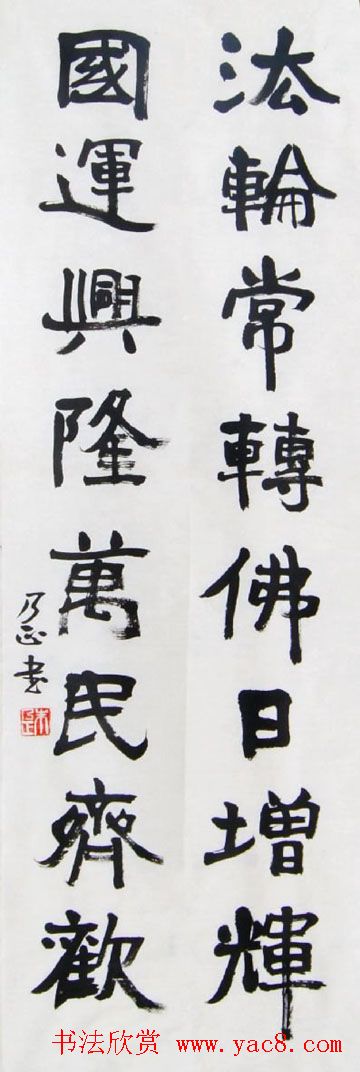 法輪常轉佛日增輝
國運興隆萬民齊歡
乃正书
书法欣赏 www.yac8.com